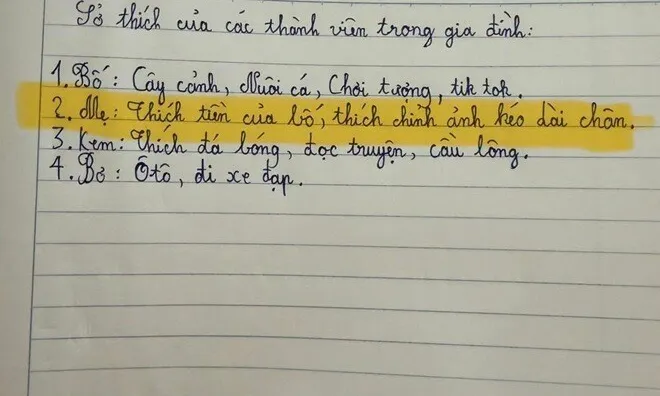 Sở thích của các thành viên trong gia đình:
1. Bố: Cây cảnh, Nuôi cá, Chơi tượng, tik tok.
2. Mẹ: Thích tiền của bố, thích chỉnh ảnh kéo dài chân.
3. Kem: Thích đá bóng, đọc truyện, cầu lông.
4. Bơ: Ôtô, đi xe đạp.